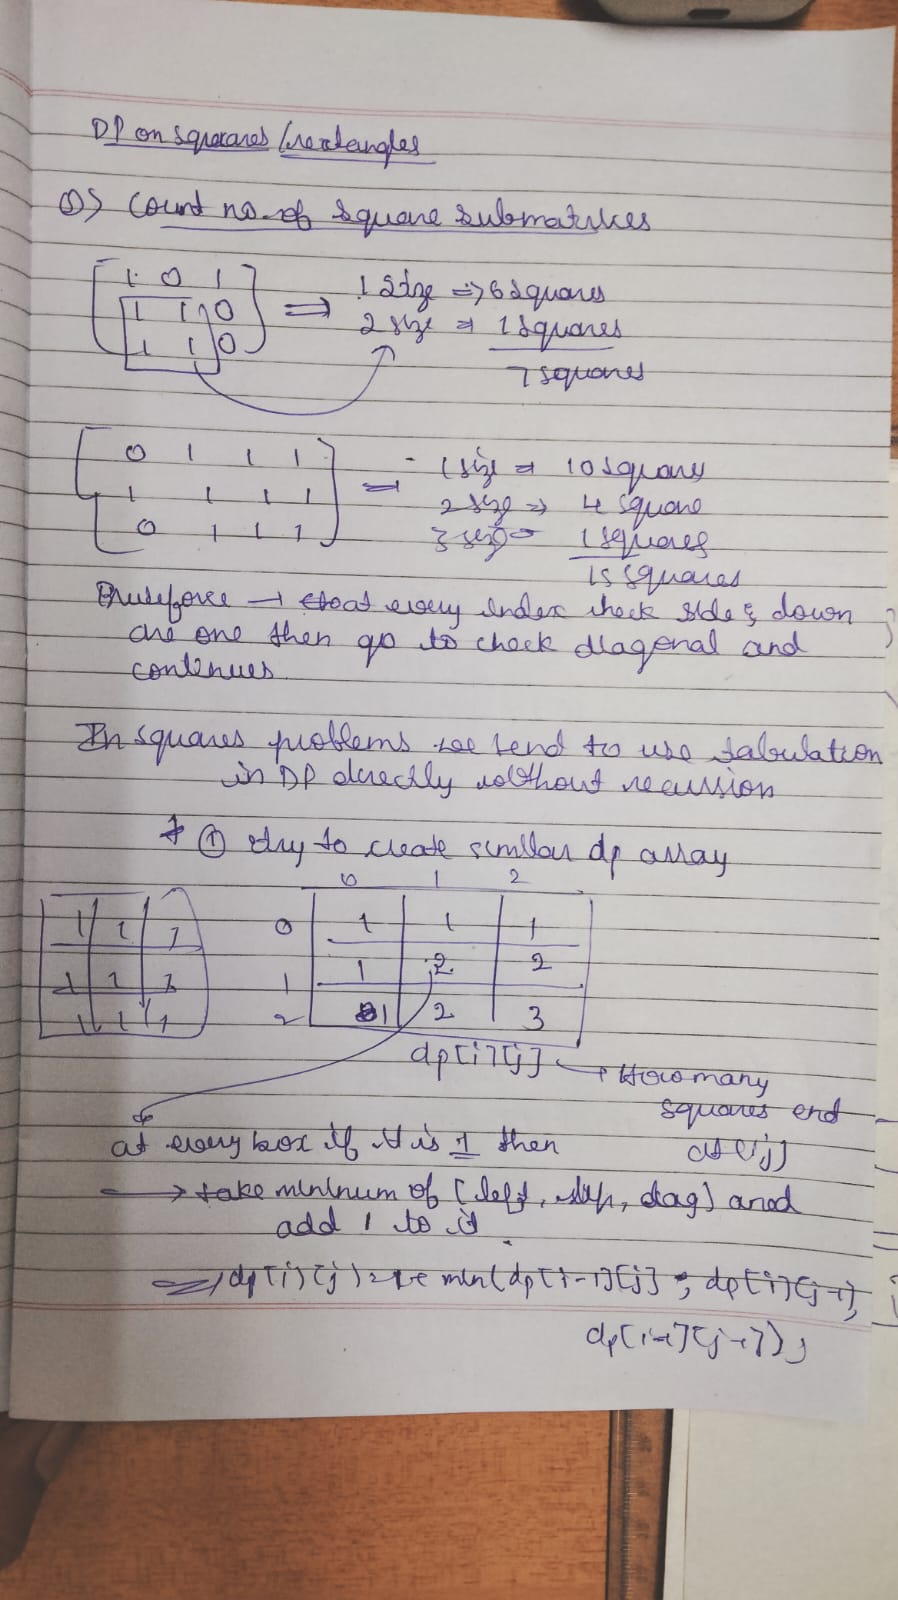 DP on squares/rectangles
Q> Count no. of square submatrices
1 0 1
1 1 0
1 1 0
⇒ 1 size => 6 squares
2 size ⇒ 1 squares
7 squares
0 1 1 1
1 1 1 1
0 1 1 1
⇒ 1 size ⇒ 10 squares
2 size ⇒ 4 square
3 size ⇒ 1 squares
15 squares
Bruteforce → at every index check side & down
are one then go to check diagonal and
continues
In squares problems we tend to use tabulation
in DP directly without recussion
* ① try to create similar dp array
0 1 2
1 1 1
1 1 1
1 1 1
0 1 1 1
1 1 2 2
2 1 2 3
dp[i][j] → How many
squares end
at (i,j)
at every box if it is 1 then
→ take mininum of [left, up, diag] and
add 1 to it.
⇒ dp[i][j] = 1 + min(dp[i-1][j], dp[i][j-1],
dp[i-1][j-1]);